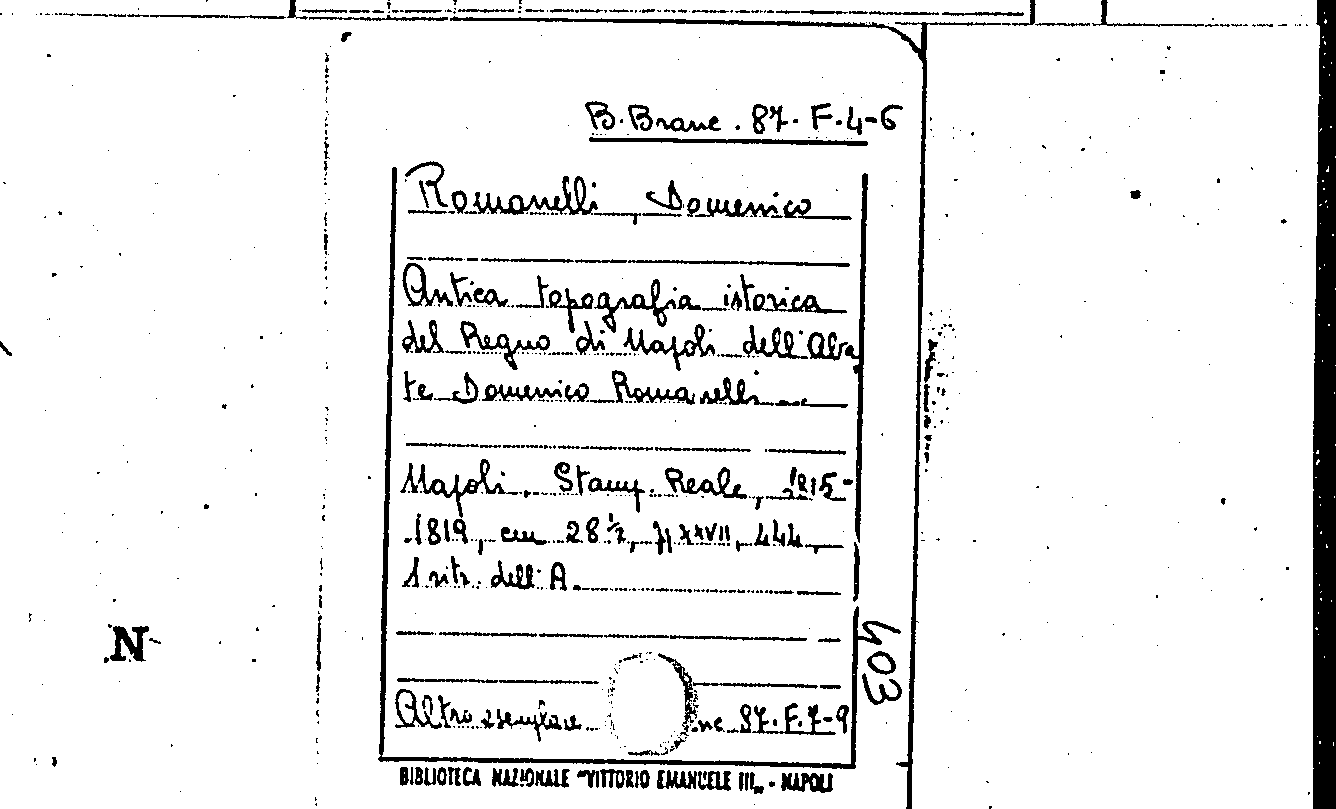 B. Branc. 87. F. 4-6
Romanelli, Domenico
Antica topografia istorica
del Regno di Napoli dell'Aba
te Domenico Romanelli
Napoli, Stamp. Reale, 1815-
1819, cm 28 1/2, pp XXVII, 444,
1 ritr. dell'A.
403
Altro esemplare nc 87. F. 7-9
BIBLIOTECA NAZIONALE "VITTORIO EMANUELE III„ - NAPOLI
N